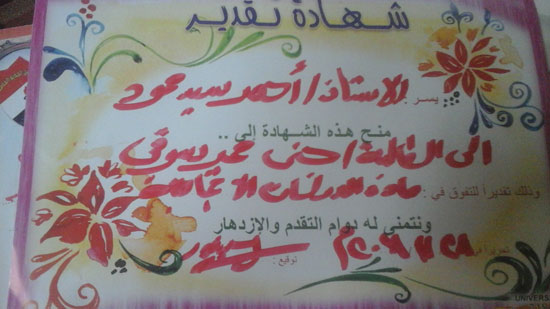 شهادة تقدير
يسر : الاستاذ / أحمد سيد محمود
منح هذه الشهادة إلى ..
الى الطالبة / منى محمد دسوقي
وذلك تقديراً للتفوق في : مادة الدراسات الاجتماعية
ونتمنى له بدوام التقدم والإزدهار
تحريراً في
توقيع :
UNIVERS